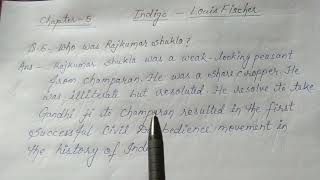 Chapter-5 Indigo - Louis Fischer
Q.5. Who was Rajkumar Shukla?
Ans - Rajkumar Shukla was a weak-looking peasant
from Champaran. He was a share cropper. He
was illiterate but resoluted. He resolve to take
Gandhi ji to Champaran resulted in the first
Successful Civil Disobedience movement in
the history of India